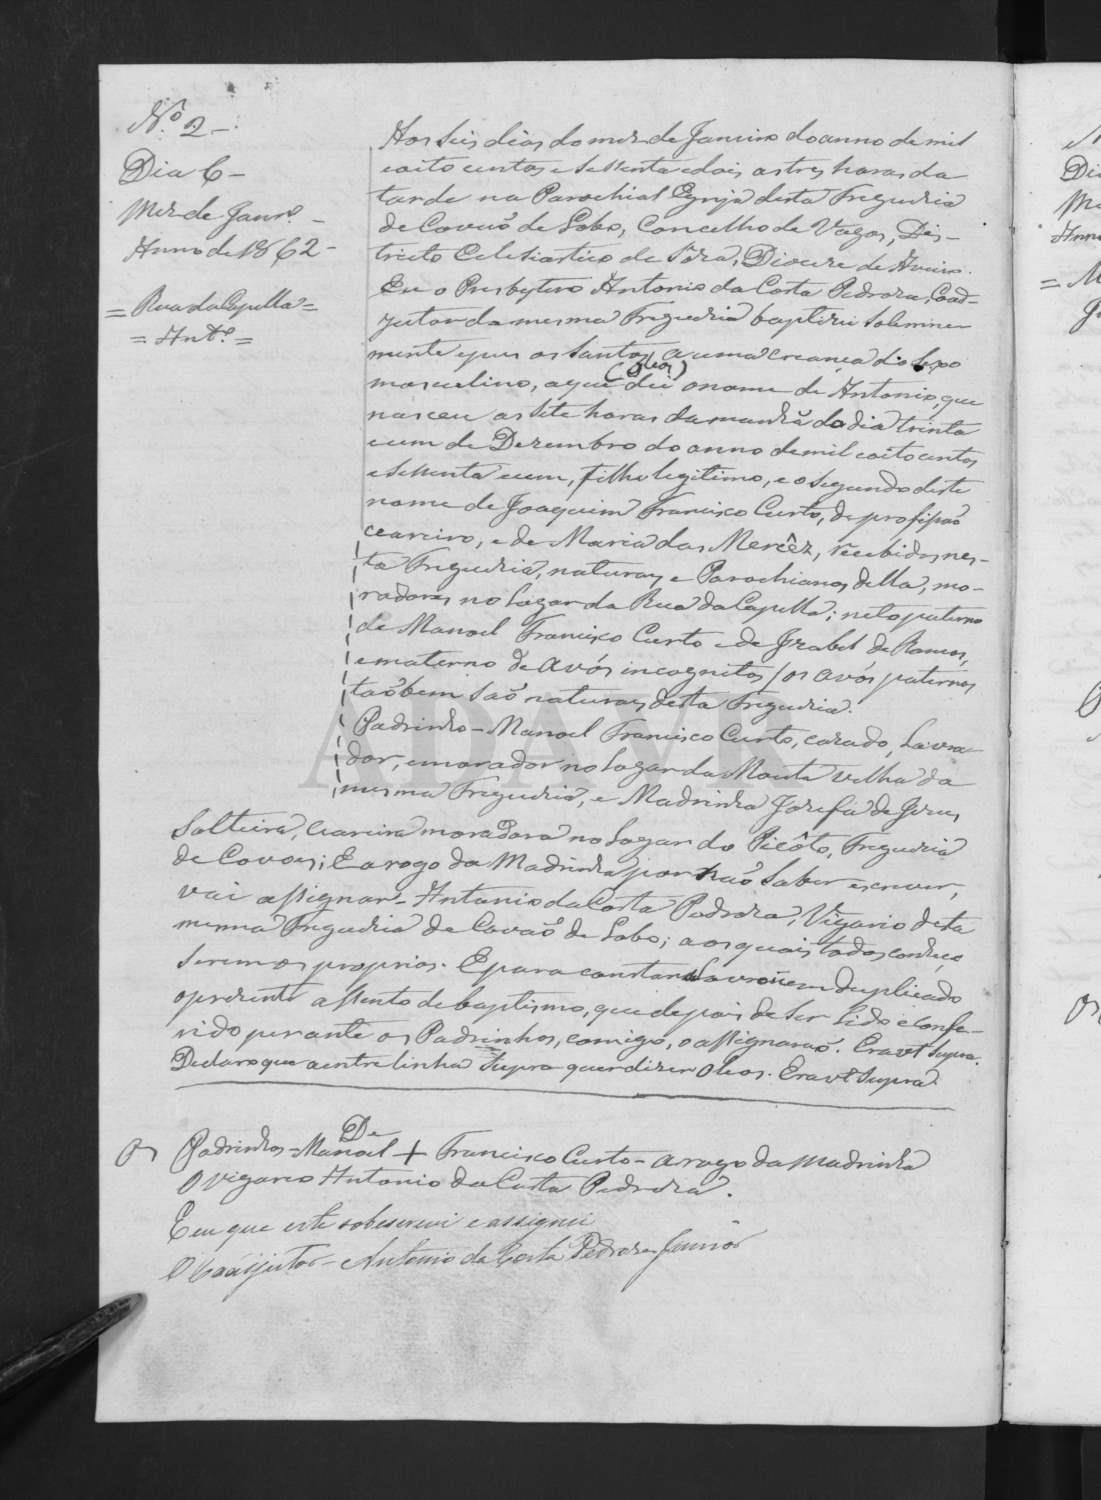 Nº 2 -
Dia 6 -
Mez de Janrº -
Anno de 1862 -
= Rua da Capella =
= Antº =
Aos seis dias do mez de Janeiro do anno de mil
oito centos e sessenta e dois, as tres horas da
tarde na Parochial Egreja desta Freguezia
de Covaõ de Lobo, Concelho de Vagos, Dis-
tricto Eclesiastico de Sôza, Diocese de Aveiro.
Eu o Presbytero Antonio da Costa Pedroza, Coad-
jutor da mesma Freguezia baptizei solemne-
mente e pus os Santos a uma creança do sexo
(Oleos)
masculino, a que dei o nome de Antonio, que
nasceu as sete horas da manhã do dia trinta
e um de Dezembro do anno de mil e oito centos
e sessenta e um, filho legitimo, e o segundo deste
nome de Joaquim Francisco Curto, de profissaõ
ceareiro, e de Maria das Mercêz, recebidos nes-
ta Freguezia, naturaes e Parochianos della, mo-
radores no Lugar da Rua da Capella; neto paterno
de Manoel Francisco Curto e de Izabel de Ramos,
e materno de avós incognitos / os avós paternos
taõbem saõ naturaes desta Freguezia.
Padrinho - Manoel Francisco Curto, cazado, Lavra-
dor, e morador no Lugar da Mouta velha da
mesma Freguezia, e Madrinha Jozefa de Jezus,
Solteira, ceareira moradora no Lugar do Picôto, Freguezia
de Covões; E a rogo da Madrinha por naõ saber escrever,
vai assignar - Antonio da Costa Pedroza, Vigario desta
mesma Freguezia de Covaõ de Lobo; aos quais todos conheço
serem os proprios. E para constar Lavrei em duplicado
o prezente assento de baptismo, que depois de ser lido e confe-
rido perante os Padrinhos, comigo, o assignaraõ. Era vt Supra.
Declaro que a entre linha supra quer dizer Oleos. Era vt Supra.
De
Padrinhos = Manoel + Francisco Curto - a rogo da Madrinha
O vigario Antonio da Costa Pedroza.
E eu que este sobescrevi e assignei
O Coadjutor - Antonio da Costa Pedroza Junior
ADAVR